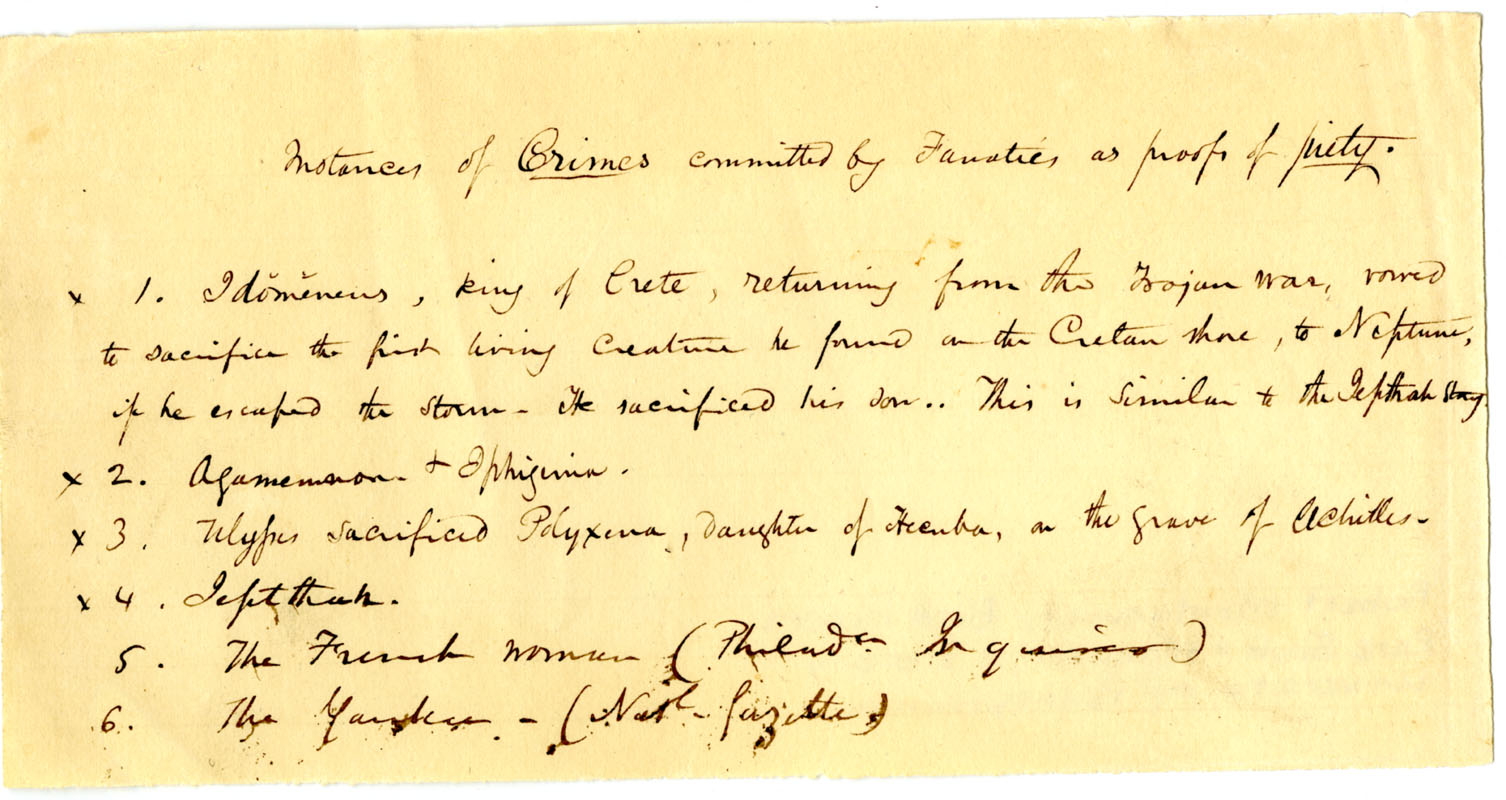 Instances of Crimes committed by Fanatics as proofs of piety.
x 1. Idŏmĕneus, king of Crete, returning from the Trojan war, vowed
to sacrifice the first living creature he found on the Cretan shore, to Neptune,
if he escaped the storm - He sacrificed his son.. This is similar to the Jepthah story.
x 2. Agamemnon & Iphigenia.
x 3. Ulysses sacrificed Polyxena, daughter of Hecuba, on the grave of Achilles -
x 4. Jeptthah.
5. The French woman (Philada. Inquirer)
6. The Yankee - (Natl. Gazette)